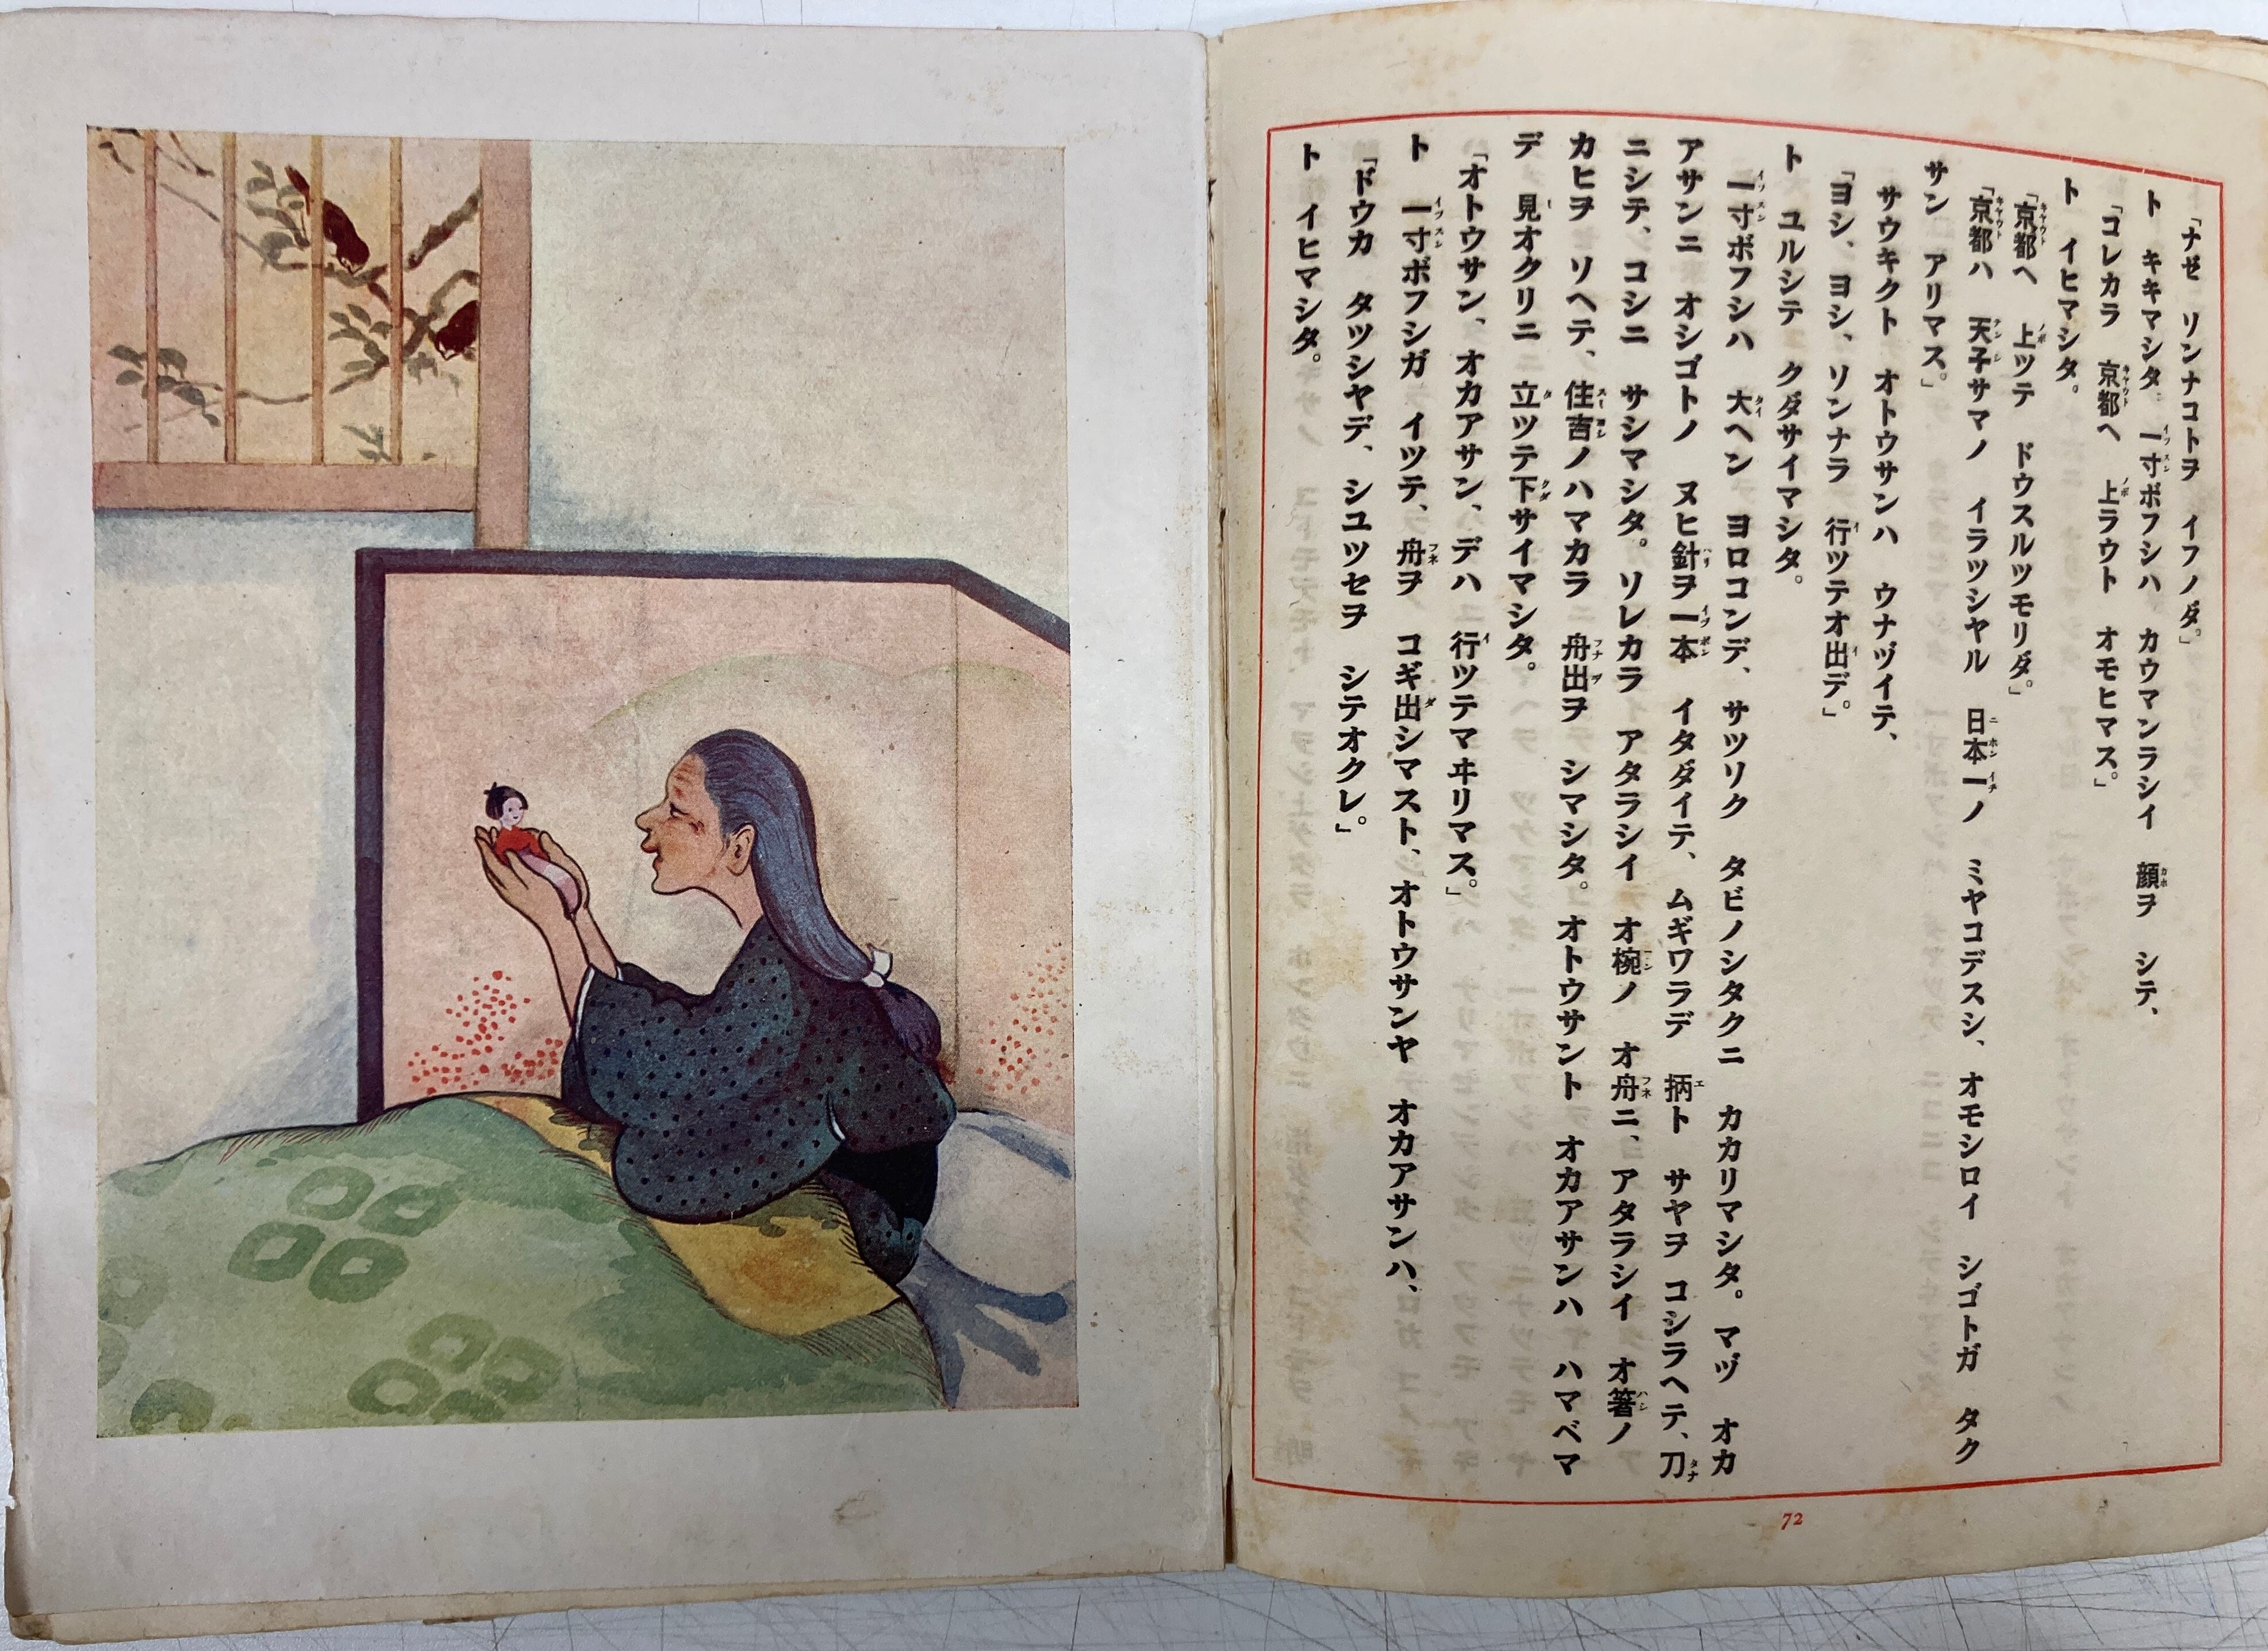 「ナゼ ソンナコトヲ イフノダ。」
ト キキマシタ。一寸ボフシハ カウマンラシイ 顔ヲ シテ、
「コレカラ 京都ヘ 上ラウト オモヒマス。」
ト イヒマシタ。
「京都ヘ 上ツテ ドウスルツモリダ。」
「京都ハ 天子サマノ イラツシヤル 日本一ノ ミヤコデスシ、オモシロイ シゴトガ タク
サン アリマス。」
サウキクト オトウサンハ ウナヅイテ、
「ヨシ、ヨシ、ソンナラ 行ツテオ出デ。」
ト ユルシテ クダサイマシタ。
一寸ボフシハ 大ヘン ヨロコンデ、サツソク タビノシタクニ カカリマシタ。マヅ オカ
アサンニ オシゴトノ ヌヒ針ヲ一本 イタダイテ、ムギワラデ 柄ト サヤヲ コシラヘテ、刀
ニシテ、コシニ サシマシタ。ソレカラ アタラシイ オ椀ノ オ舟ニ、アタラシイ オ箸ノ
カヒヲ ソヘテ、住吉ノハマカラ 舟出ヲ シマシタ。オトウサント オカアサンハ ハマベマ
デ 見オクリニ 立ツテ下サイマシタ。
「オトウサン、オカアサン、デハ 行ツテマヰリマス。」
ト 一寸ボフシガ イツテ、舟ヲ コギ出シマスト、オトウサンヤ オカアサンハ、
「ドウカ タツシヤデ、シユツセヲ シテオクレ。」
ト イヒマシタ。
72